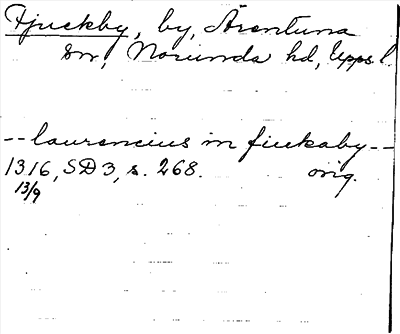 Fjuckby, by, Ärentuna
sn, Norunda hd, Upps. l.
-- laurencius in fiukaby --
1316, SD 3, s. 268. orig.
13/9